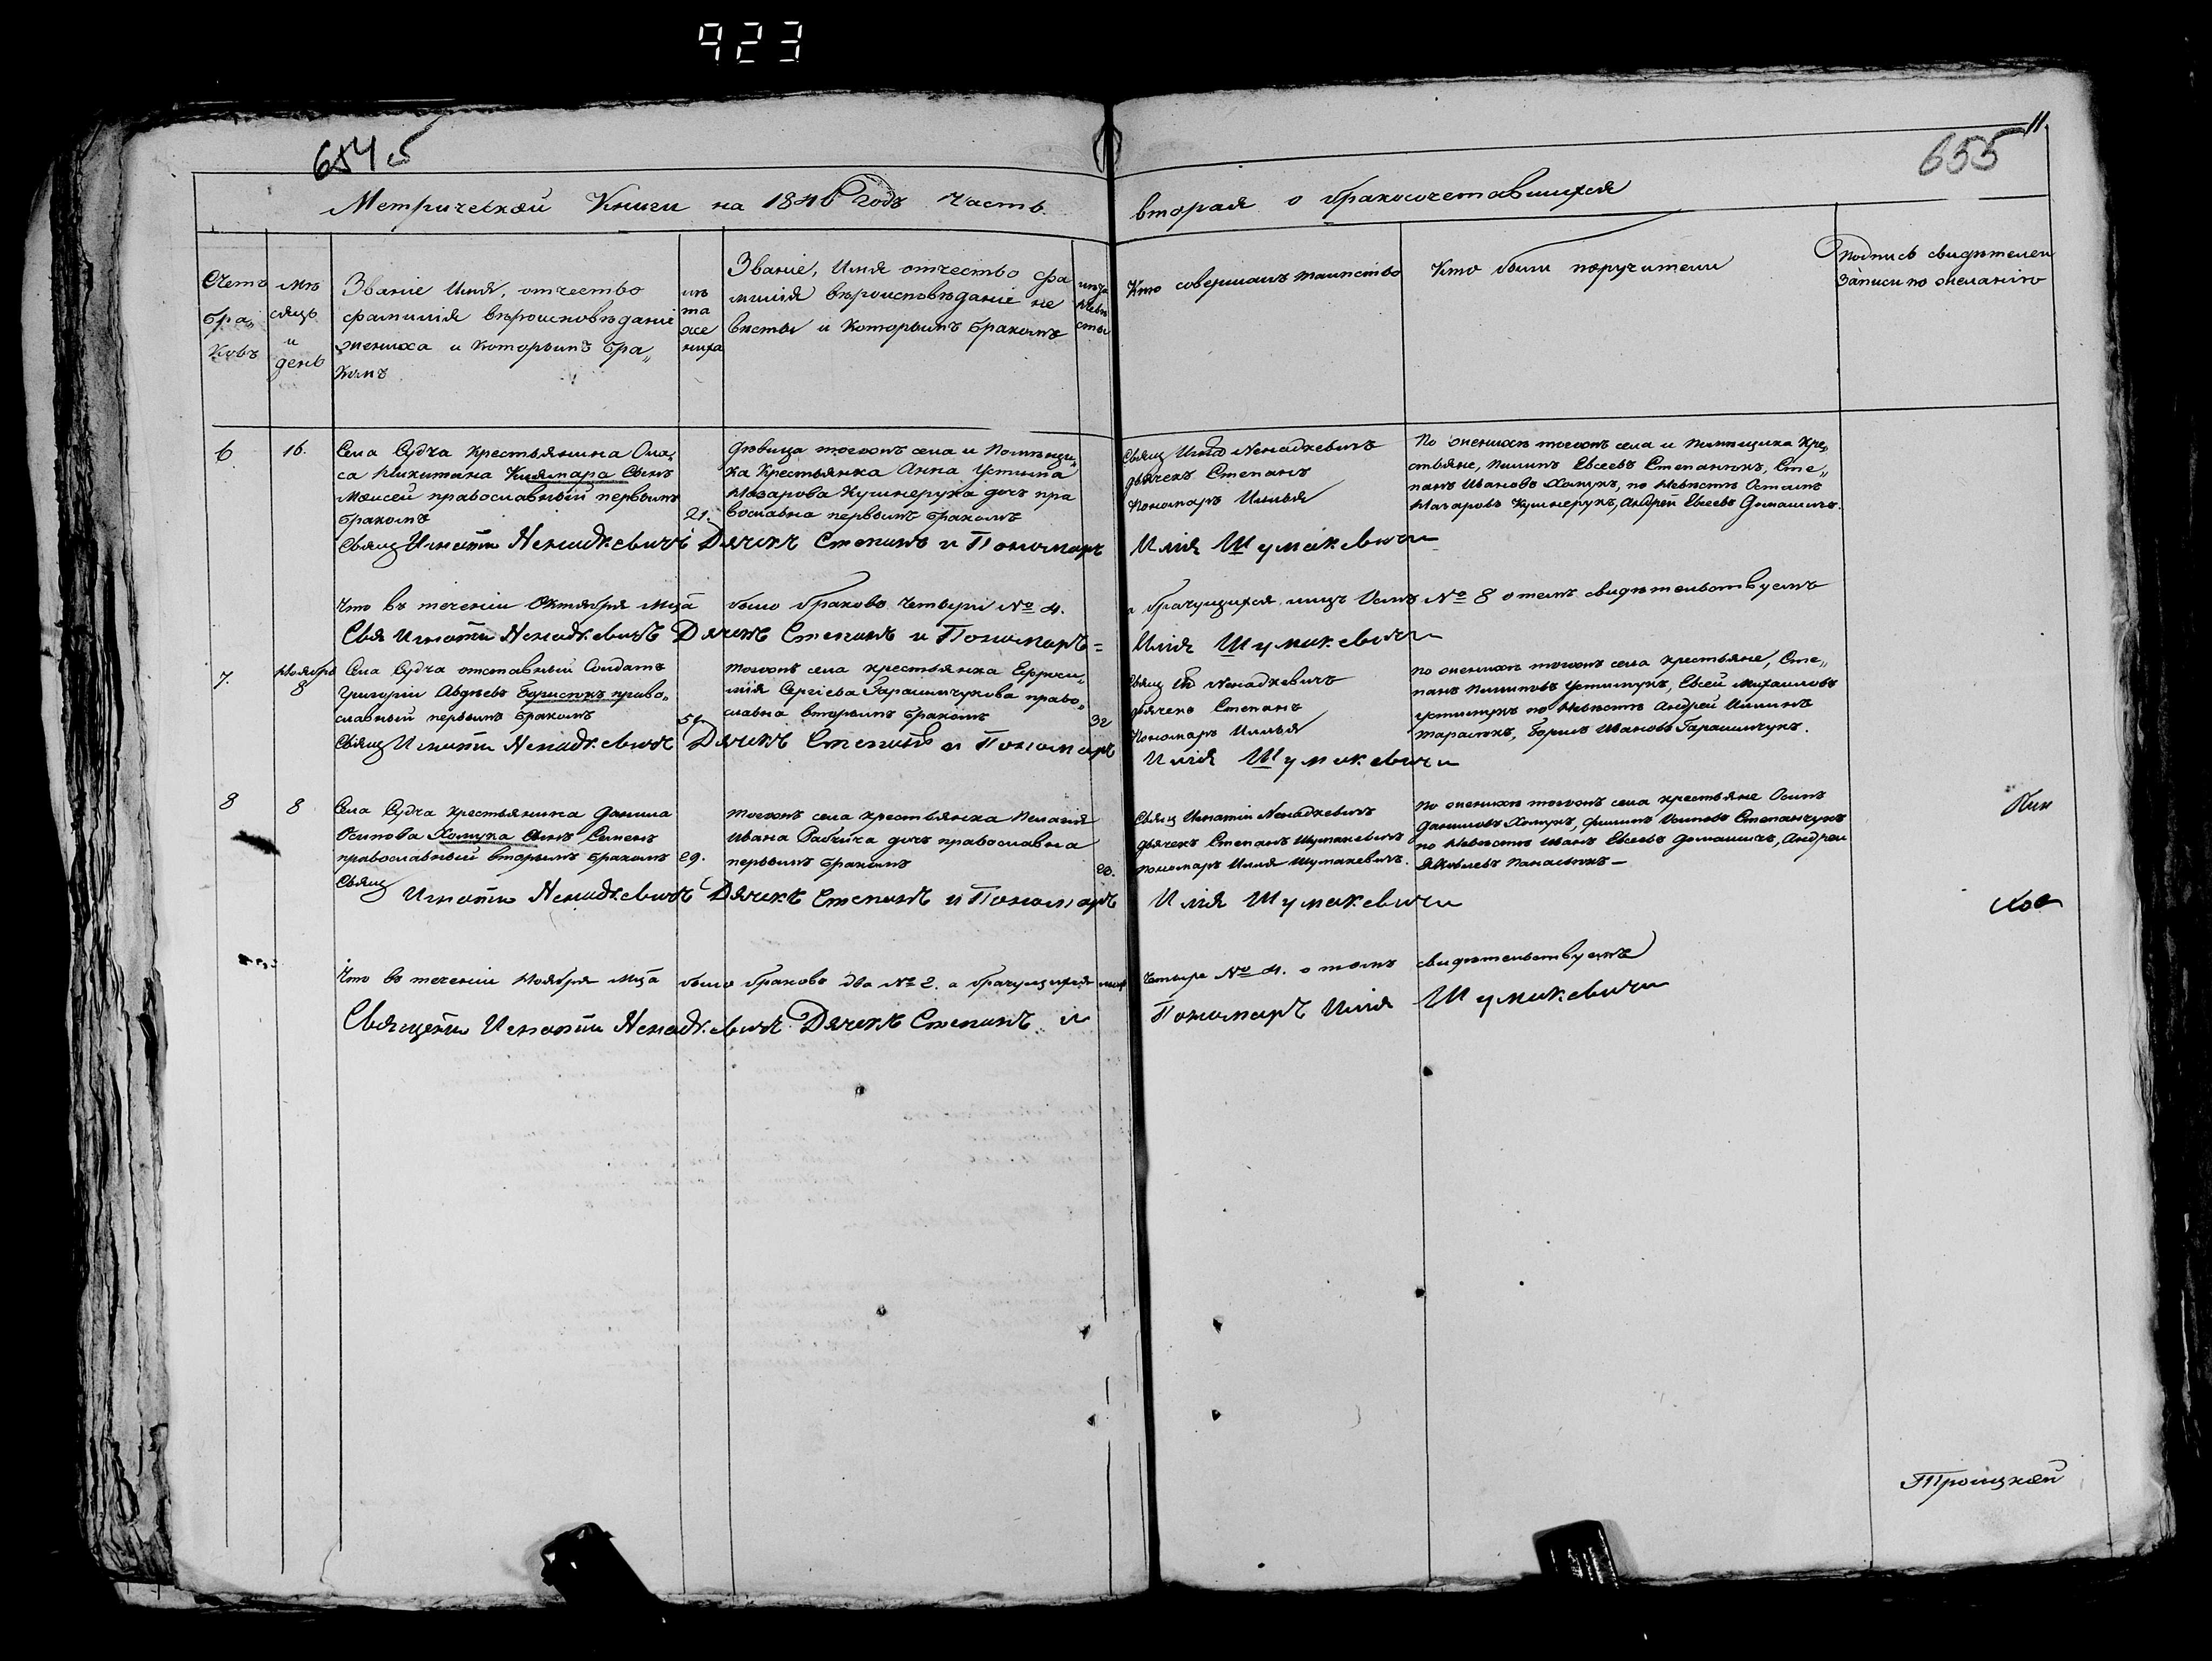 923
654
655
11
Метрической Книги на 1846 Годъ Часть
вторая о бракосочетавшихся
Счетъ
бра,,
ковъ
мѣ
сяцъ
и
день
Званіе Имя, отчество
фамилія вѣроисповѣданіе
жениха и которымъ бра,,
комъ
лѣ
та
же
ниха
Званіе, Имя отчество фа
милія вѣроисповѣданіе не
вѣсты и которымъ бракомъ
лѣта
невѣ
сты
Кто совершалъ таинство
Кто были поручители
Подпись свидѣтелей
Записи по желанію
6.
16.
Села Судча крестьянина
са Никитина сынъ
Моисей православный первымъ
бракомъ
21.
Дѣвица тогожъ села и Помѣщи,,
ка Крестьянка Анна Устина
Назарова Кушнерука дочь пра
вославна первымъ бракомъ
Свящ Ненадкевичъ
дьячекъ Степанъ
Пономарь Иилья
По женихѣ тогожъ села и помѣщика кре,,
стьяне, Пилипъ Евсеевъ Степанюкъ, Сте,,
панъ Ивановъ Хомукъ, по невѣстѣ Остапъ
Кушнерукъ, Андрей Евсеевъ Домашичъ.
Свящ Игнатій Ненадкевичъ Дячекъ Степанъ и Пономарь
Илія Шумакевичи
Что въ теченіи Октября Мца было браковъ четыри № 4.
а брачущихся лицъ № 8 о темъ свидѣтельствуемъ
Свя Игнатій Ненадкевичъ Дячекъ Степанъ и Пономарь =
Илія Шумакевичи
7.
Ноября
8
Села Судча отставный Солдатъ
Григорій Авдѣевъ Борисюкъ право,,
славный первымъ бракомъ
Тогожъ села крестьянка Ефроси,,
нія Сергіева Гарашимчукова право,,
славна вторымъ бракомъ
32
Свящ Ненадкевичъ
дьячекъ Степанъ
Пономарь Иилья
по женихѣ тогожъ села крестьяне, Сте,,
панъ Пилиповъ Устимукъ, Евсей Михаиловъ
Устимукъ по невѣстѣ Андрей
Тарасюкъ, Борисъ Ивановъ Гарашимчукъ.
Свящ Игнатій Ненадкевичъ Дячекъ Степанъ и Пономарь
Илія Шумакевичи
8
8
Села Судча крестьянина Данила
Осипова Хомука сынъ Семенъ
православный вторымъ бракомъ
29.
Тогожъ села крестьянка Пелагія
Ивана дочь православна
первымъ бракомъ
Свящ Игнатій Ненадкевичъ
дьячекъ Степанъ Шумакевичъ
пономарь Илия Шумакевичъ.
По женихѣ тогожъ села крестьяне Осипъ
Даниловъ Хомукъ, Филипъ Степанчукъ
по невѣстѣ Иванъ Евсеевъ Домашичъ, Андрей
Яковлевъ Панасюкъ —
Свящ
Игнатій Ненадкевичъ Дячекъ Степанъ и Пономарь
Илія Шумакевичи
Что въ теченіи Ноября Мца было браковъ два № 2. а брачущихся лицъ
четыре № 4. о томъ свидѣтельствуемъ
Игнатій Ненадкевичъ Дячекъ Степанъ и
Пономарь Илія Шумакевичи
Троицкой